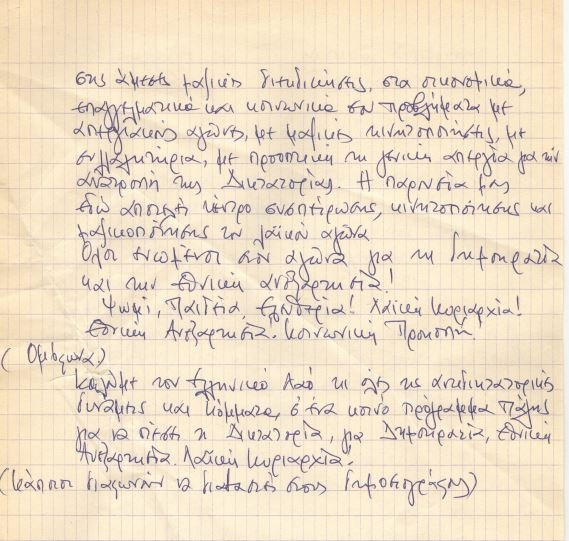 στις άμεσες μαζικές διεκδικήσεις, στα οικονομικά,
επαγγελματικά και κοινωνικά σου προβλήματα με
απεργιακούς αγώνες, με μαζικές κινητοποιήσεις, με
συλλαλητήρια, με προοπτική τη γενική απεργία για την
ανατροπή της Δικτατορίας. Η παρουσία μας
εδώ αποτελεί κέντρο συσπείρωσης, κινητοποίησης και
μαζικοποίησης του λαϊκού αγώνα
Όλοι ενωμένοι στον αγώνα για τη Δημοκρατία
και την Εθνική ανεξαρτησία!
Ψωμί, Παιδεία, Ελευθερία! Λαϊκή Κυριαρχία!
Εθνική Ανεξαρτησία. Κοινωνική Προκοπή.
(Ομόφωνα)
Καλούμε τον Ελληνικό Λαό κι όλες τις αντιδικτατορικές
δυνάμεις και Κόμματα, σ' ένα κοινό πρόγραμμα Πάλης
για να πέσει η Δικτατορία, για Δημοκρατία, Εθνική
Ανεξαρτησία. Λαϊκή Κυριαρχία.
(κάποιοι διαφωνούν να διαβαστεί στους δημοσιογράφους)